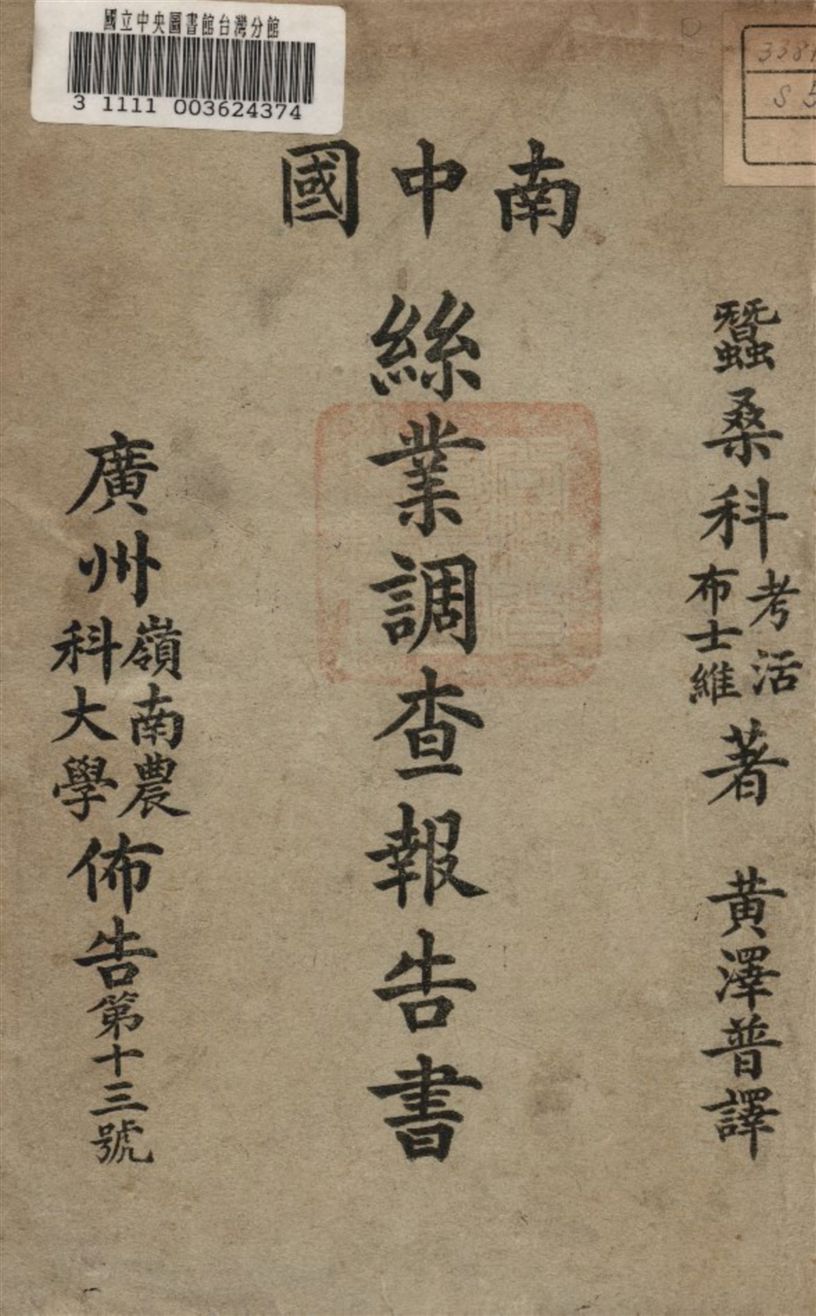 國立中央圖書館台灣分館
3 1111 003624374
南中國
蠶桑科
考活
布士維
著 黃澤普譯
絲業調查報告書
廣州
嶺南農
科大學
佈告第十三號